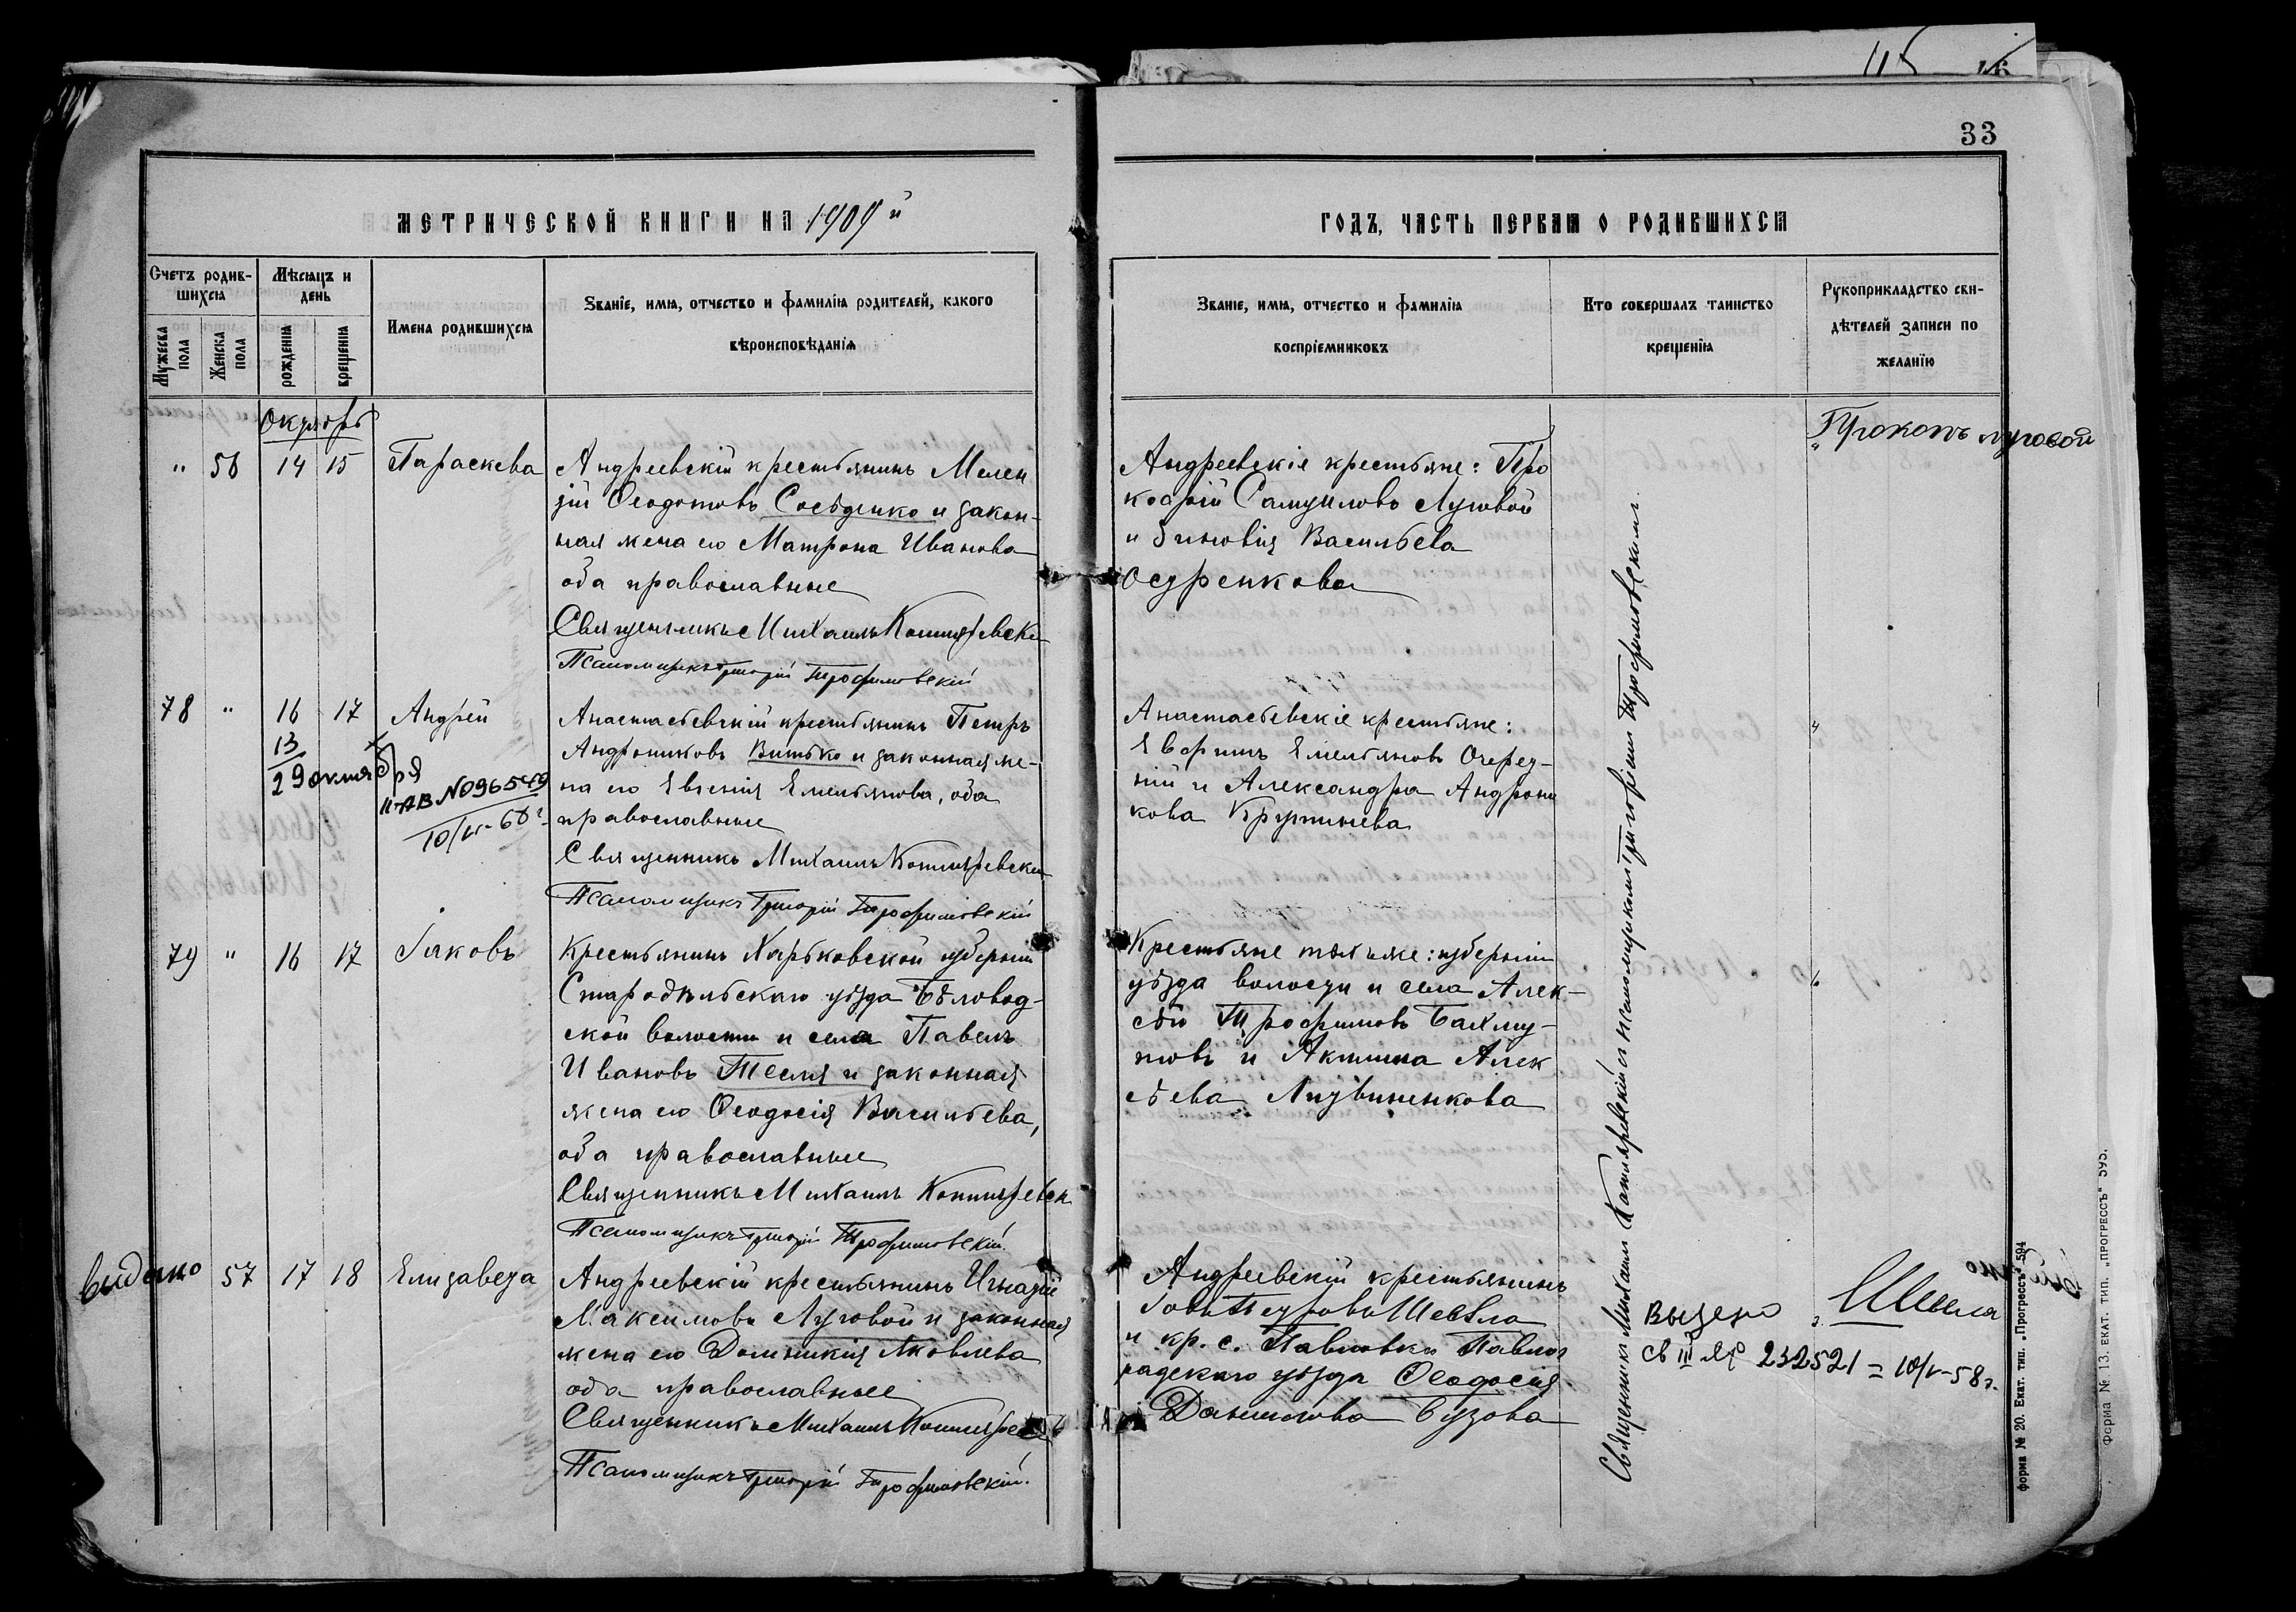 115
33
МЕТРИЧЕСКОЙ КНИГИ НА 1909й
ГОДЪ, ЧАСТЬ ПЕРВАЯ О РОДИВШИХСЯ
Счетъ родив-
шихся
Мужеска пола
Женска пола
Мѣсяцъ и
день
рожденія
крещенія
Имена родившихся
Званіе, имя, отчество и фамилія родителей, какого
вѣроисповѣданія
Званіе, имя, отчество и фамилія
воспріемниковъ
Кто совершалъ таинство
крещенія
Рукоприкладство сви-
дѣтелей записи по
желанію
Октябрь
" 56 14 15 Параскева
Андреевскій крестьянинъ Мелен
тій Ѳеодотовъ Сосѣденко и закон-
ная жена его Матрона Иванова
оба православные
Священникъ Михаилъ Котляревскі
Псаломщикъ Григорій Трофимовскій
Андреевскіе крестьяне: Про
кофій Самуиловъ Луговой
и Зиновія Васильева
Прокопъ Луговой
78 " 16 17 Андрей
13
29 октября
II-АВ №096549
Анастасьевскій крестьянинъ Петръ
Андрониковъ Витько и законная же-
на его Евгенія Емельянова, оба
православные
Священникъ Михаилъ Котляревскій
Псаломщикъ Григорій Трофимовскій
Анастасьевскіе крестьяне:
Емельяновъ Очеред-
ній и Александра Андрони
кова
"
79 " 16 17 Іаковъ
Крестьянинъ Харьковской губерніи
Старобѣльскаго уѣзда Бѣловод-
ской волости и села Павелъ
Ивановъ Тесля и законная
жена его Ѳеодосія Васильева,
оба православные
Священникъ Михаилъ Котляревск
Псаломщикъ Григорій Трофимовскій.
Крестьяне тѣхъ же: губерніи
уѣзда волости и села Алек-
сѣй Трофимовъ Бахму-
товъ и Акилина Алек
сѣева Литвиненкова
"
видано 57 17 18 Елизавета
Андреевскій крестьянинъ Игнатій
Максимовъ Луговой и законная
жена его Домникія Яковлева
оба православные
Священникъ Михаилъ Котляревскі
Псаломщикъ Григорій Трофимовскій.
Андреевскій крестьянинъ
Іовъ Петровъ Шевела
и кр. с. Павловки Павлог
радскаго уѣзда Ѳеодосія
Даниилова Бузова
св III 232521 = 10/V-58г.
Священникъ Михаилъ Котляревскій и псаломщикъ Григорій Трофимовскій.
форма № 20. Екат. тип. „Прогрессъ“ 594
Форма № 13. ЕКАТ. ТИП. „ПРОГРЕССЪ“ 595.